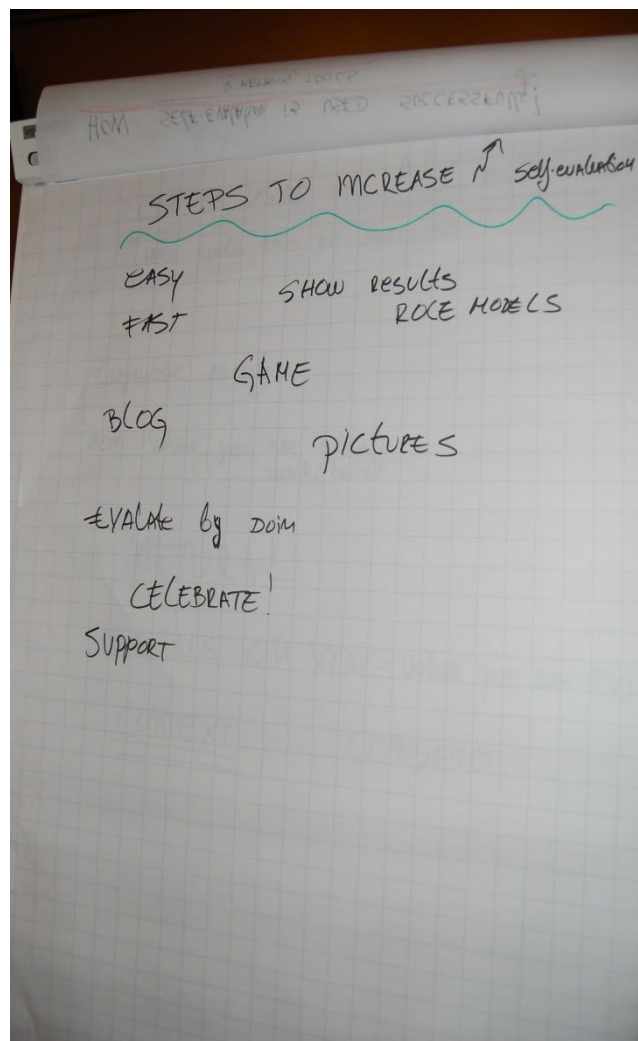 STEPS TO INCREASE self-evaluation
EASY
SHOW RESULTS
FAST
ROLE MODELS
GAME
BLOG
PICTURES
EVALATE by DOIN
CELEBRATE!
SUPPORT